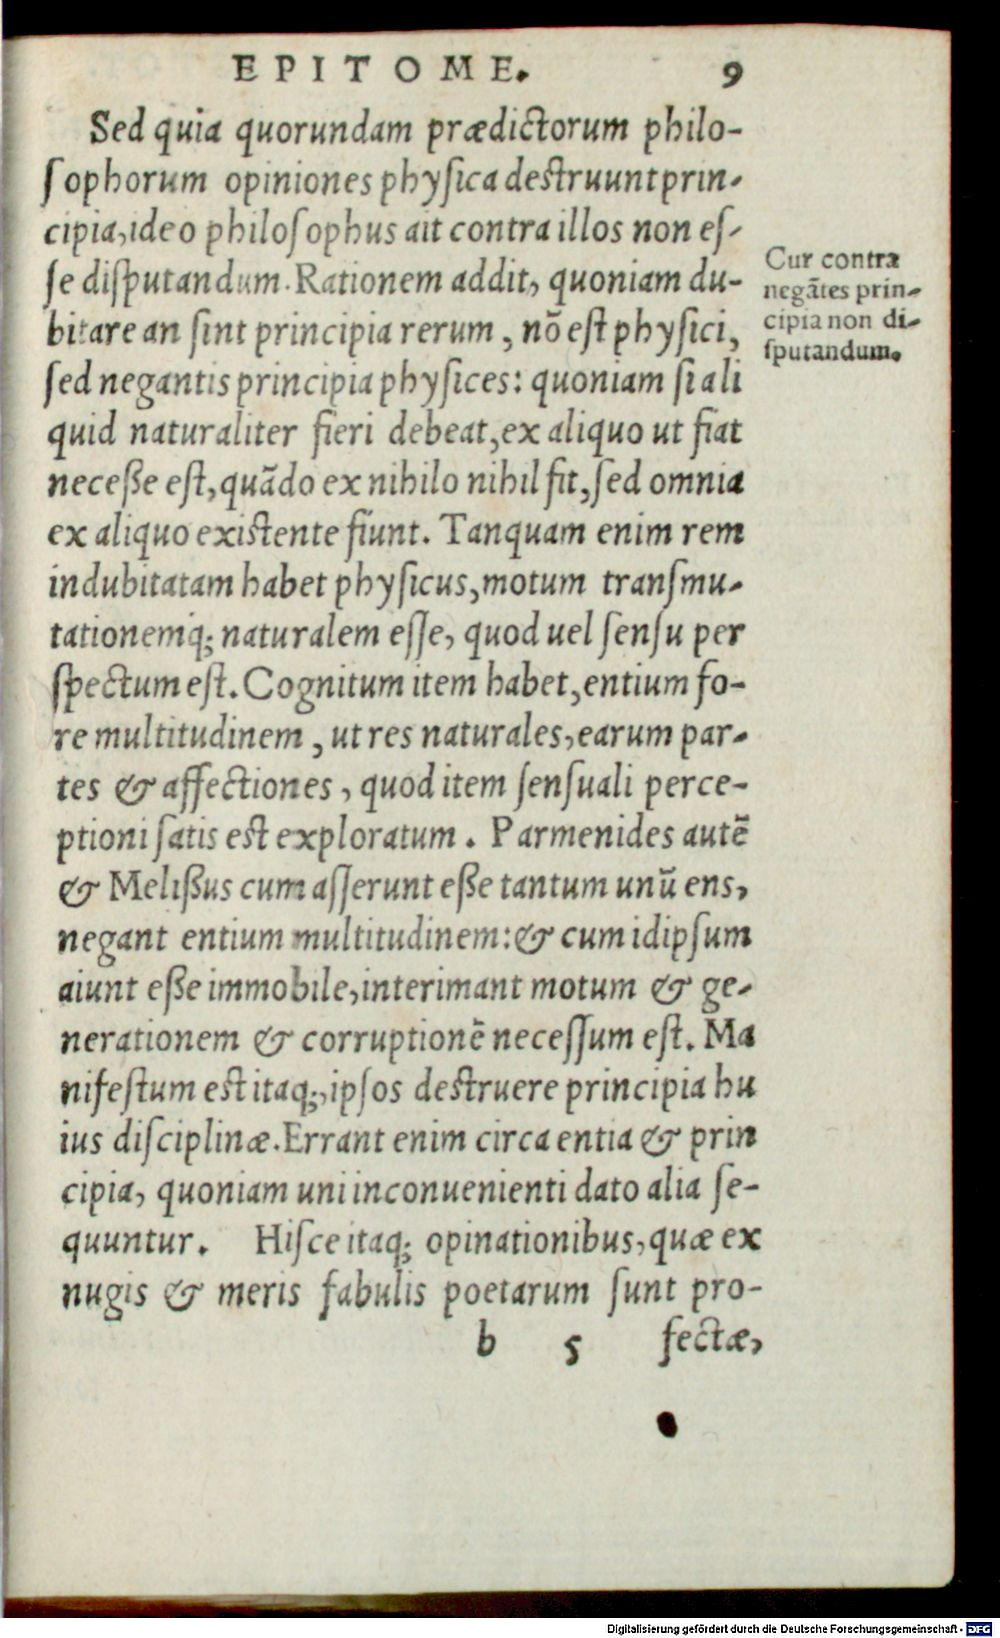 EPITOME. 9
Sed quia quorundam prædictorum philo-
sophorum opiniones physica destruunt prin-
cipia, ideo philosophus ait contra illos non es-
se disputandum. Rationem addit, quoniam du-
bitare an sint principia rerum, nõ est physici,
sed negantis principia physices: quoniam si ali
quid naturaliter fieri debeat, ex aliquo ut fiat
neceße est, quãdo ex nihilo nihil fit, sed omnia
ex aliquo existente fiunt. Tanquam enim rem
indubitatam habet physicus, motum transmu-
tationemq; naturalem esse, quod uel sensu per
spectum est. Cognitum item habet, entium fo-
re multitudinem, ut res naturales, earum par-
tes & affectiones, quod item sensuali perce-
ptioni satis est exploratum. Parmenides autẽ
& Melißus cum asserunt eße tantum unũ ens,
negant entium multitudinem: & cum idipsum
aiunt eße immobile, interimant motum & ge-
nerationem & corruptionẽ necessum est. Ma
nifestum est itaq;, ipsos destruere principia hu
ius disciplinæ. Errant enim circa entia & prin
cipia, quoniam uni inconuenienti dato alia se-
quuntur. Hisce itaq; opinationibus, quæ ex
nugis & meris fabulis poetarum sunt pro-
b 5 fectæ,
Cur contra
negãtes prin-
cipia non di-
sputandum.
Digitalisierung gefördert durch die Deutsche Forschungsgemeinschaft - DFG